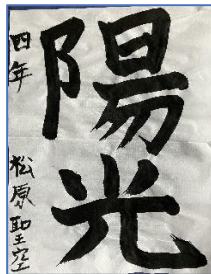 陽光
四年 松原聖空